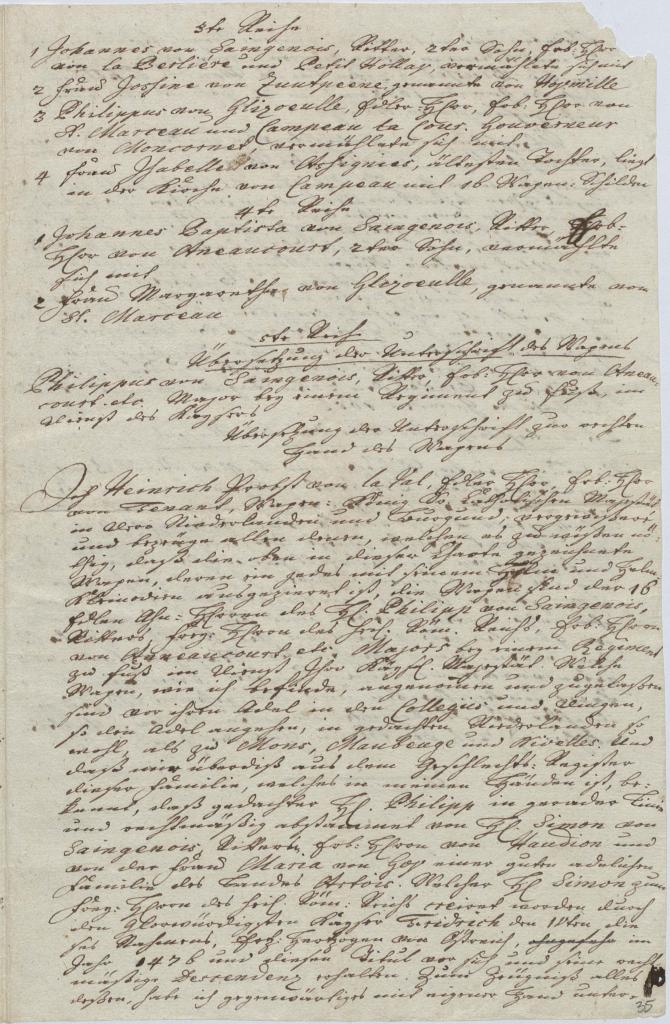 3te Reihe
1 Johannes von Saingenois, Ritter, 2ter Sohn, Erb: Hhr
von la Berliere und Petit Hollay, vermählete sich mit
2 Frau Jossine von Zuutpeene genannte von Hopmille
3 Philippus von Glizoeulle, Edler Hhr, Erb: Hhr von
St. Marceau und Campeau la Cour. Gouverneur
von Moncornet vermählete sich mit
4 Frau Isabelle von Ossignies, ältesten Tochter, liegt
in der Kirche von Campeau mit 16 Wapen: Schilden
4te Reihe
1 Johannes Baptista von Saingenois, Ritter, Erb:
Hhr von Aneaucourt, 2ter Sohn, vermählte
sich mit
2 Frau Margaretha von Glizoeulle, genannte von
St. Marceau
5te Reihe
Übersetzung der Unterschrift des Wapens
Philippus von Saingenois, Ritter, Erb: Hhr von Aneau,
court etc. Major bey einem Regiment zu Fuß, im
Dienst des Kaysers
Übersetzung der Unterschrift zur rechten
Hand des Wapens
Ich Heinrich Probst von la Val, Edler Hhr, Erb: Hhr
von Tenant, Wapen: König Sr. Catholischen Mayestät
in den Niederlanden und Burgund, vergewissere
und bezeuge allen denen, welchen es zu wissen nö-
thig, daß die oben in dieser Charte gezeichnete
Wapen, deren ein jedes mit seinem und Helm
Kleinodien ausgezieret ist, die Wapen sind der 16
Edlen Ahn: Herren des H. Philipp von Saingenois,
Ritters, Frey: Herrn des heil. Röm. Reichs, Erb: Herrn
von Anneaucourt, etc. Majors bey einem Regiment
zu Fuß im Dienst Ihro Kayserl. Mayestät Welche
Wapen, wie ich befinde, angenommen und zugelaßen
sind vor ihren Adel in den Collegiis und Dingen,
so den Adel angehen, in gedachten Niederlanden so
wohl, als zu Mons, Maubeuge und Nivelles. Und
daß mir überdiß aus dem Geschlechts: Register
dieser Familie, welches in meinen Händen ist, be-
kannt, daß gedachter H. Philipp in gerader Linie
und rechtmäßig abstammet von H. Simon von
Saingenois, Ritters, Erb: Herrn von Haudion und
von der Frau Maria von Hoy einer guten adelichen
Familie des Landes Artois. Welcher H. Simon zum
Frey: Herrn des heil. Röm: Reichs creiret worden durch
den Glorwürdigsten Kayser Fridrich den IVten die
ses Nahmens, Erz: Herzogen von Östreich, im
Jahr 1476 und diesen Titul vor sich und seine recht
mäßige Descendenz erhalten. Zum Zeugniß alles
deßen, habe ich gegenwärtiges mit eigener Hand unter-
35